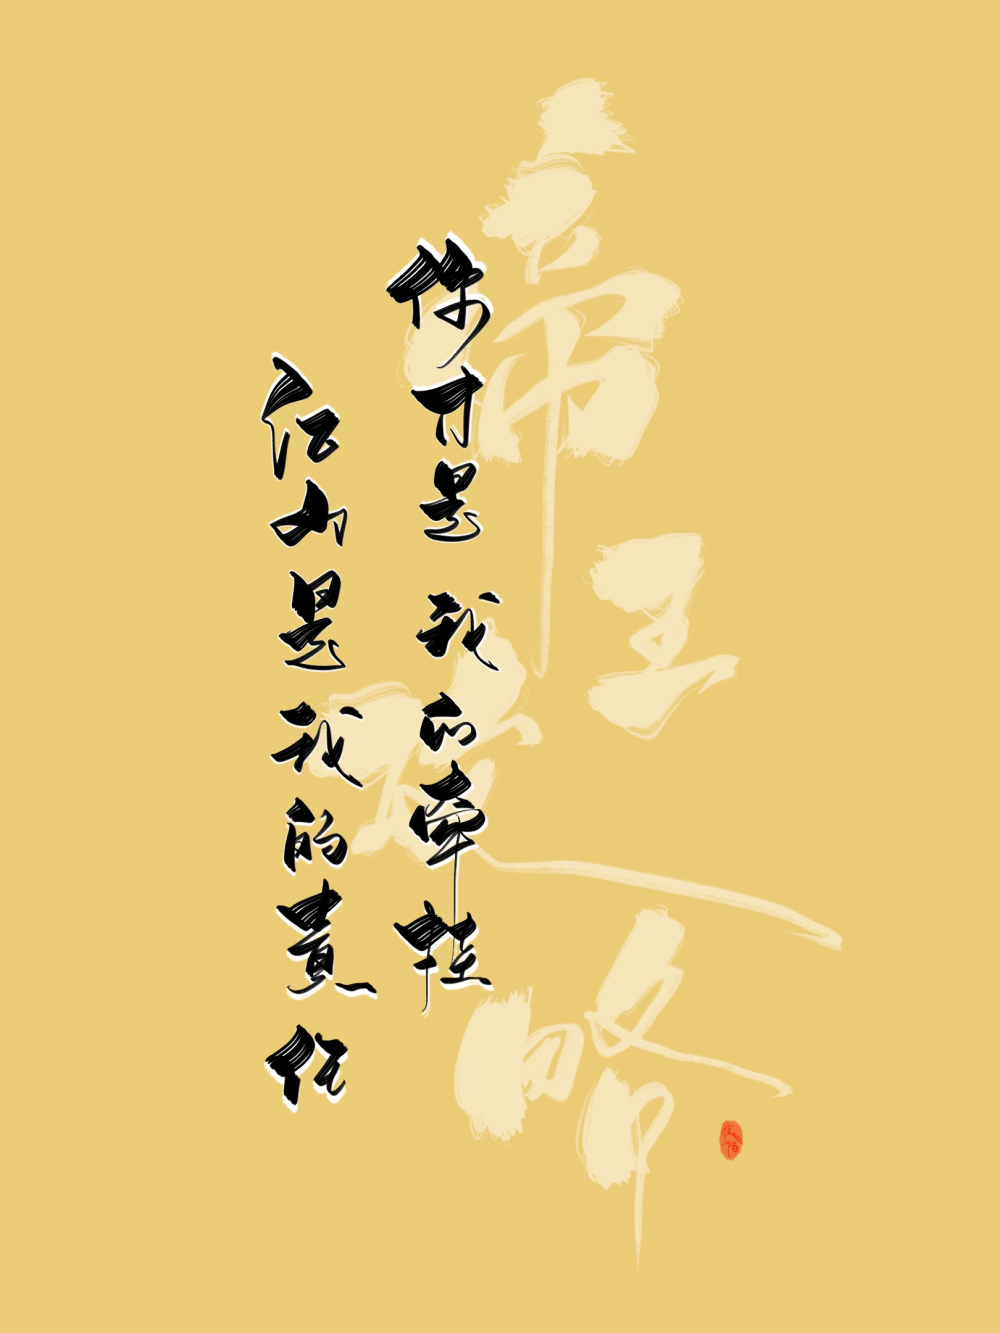 帝王攻略
你才是我的牽挂
江山是我的責任